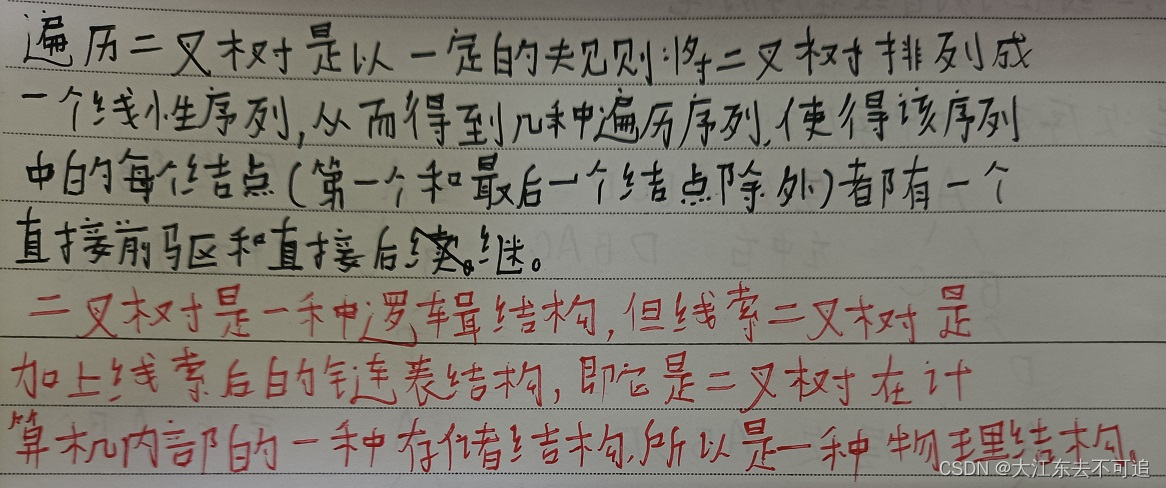 遍历二叉树是以一定的规则将二叉树排列成
一个线性序列,从而得到几种遍历序列,使得该序列
中的每个结点(第一个和最后一个结点除外)都有一个
直接前驱和直接后继。
二叉树是一种逻辑结构,但线索二叉树是
加上线索后的链表结构,即它是二叉树在计
算机内部的一种存储结构,所以是一种物理结构。
CSDN @大江东去不可追